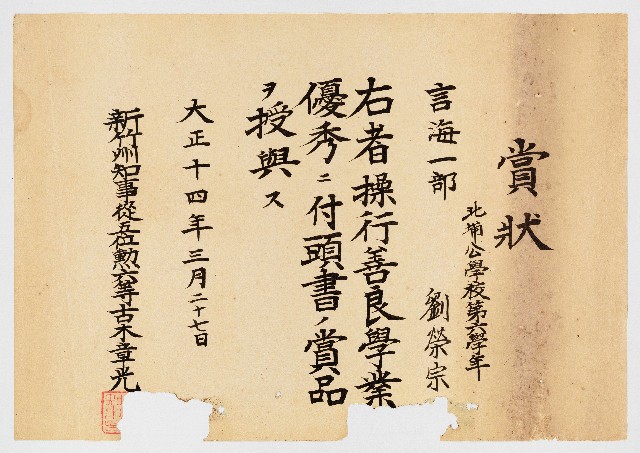 賞狀
北埔公學校第六學年
劉榮宗
言海一部
右者操行善良學業
優秀ニ付頭書ノ賞品
ヲ授與ス
大正十四年三月二十七日
新竹州知事從五位勲六等古木章光